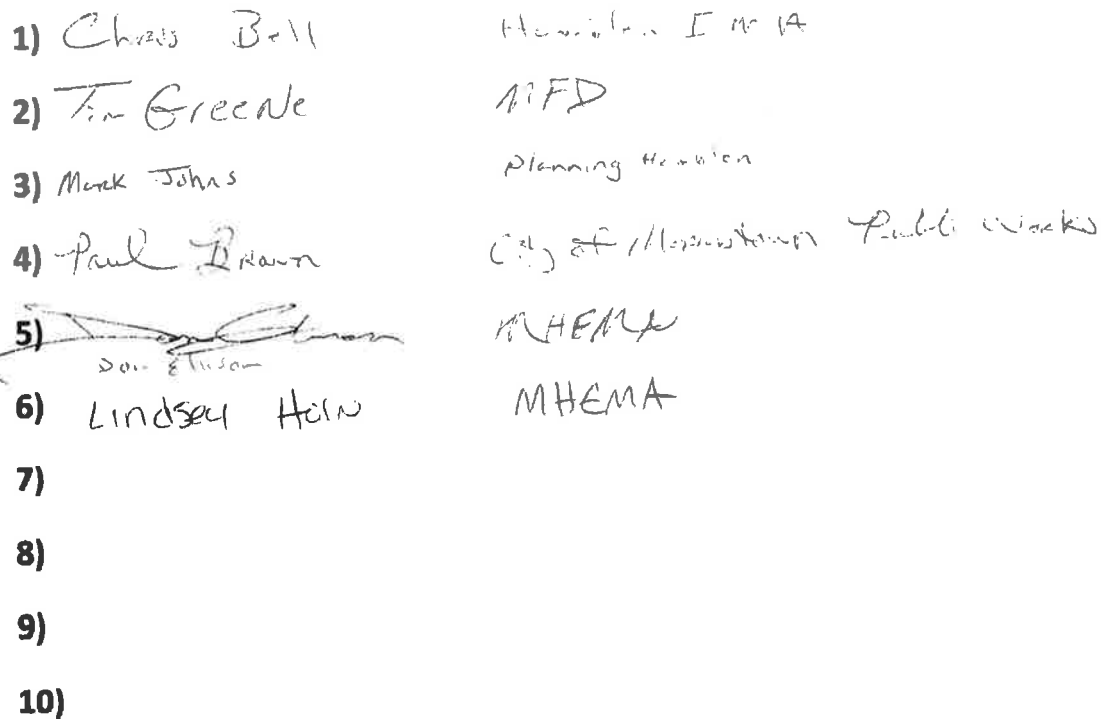 1) Chris Bell Hamblen EMA
2) Tim Greene MFD
3) Mark Johns Planning Hamblen
4) Paul Brown City of Morristown Public Works
5) MHEMA
6) Lindsey MHEMA
7)
8)
9)
10)